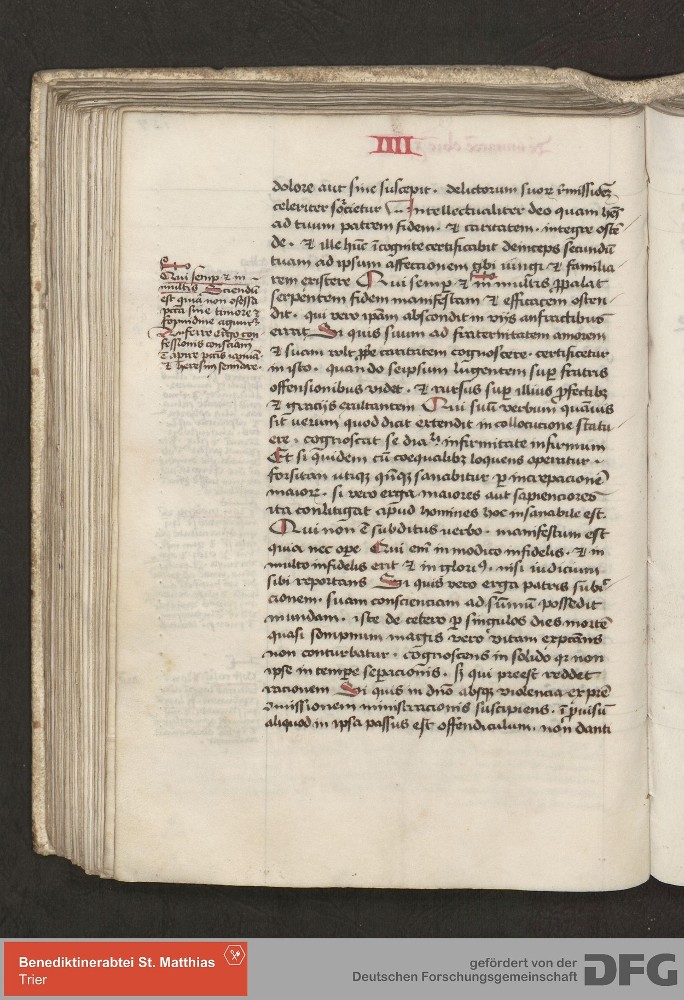 IIII
dolore aut sine suscepit · delictorum suoꝝ r̄missionē
celeriter sociētur Intellectualiter deo quam hēs
ad tuum patrem fidem · ⁊ caritatem · integre ostē
de · ⁊ ille huic īcognite certificabit deinceps secundū
tuam ad ipsum affectionem sibi iungi ⁊ familia
rem existere Qui semp̲ ⁊ in multis p̲palat
serpentem fidem manifestam ⁊ efficacem osten
dit · qui vero ip̄am abscondit in vijs anfractibus
errat Si quis suum ad fraternitatem amorem
⁊ suam vult p̲pe caritatem cognoscere · certificetur
in isto · quando seipsum lugentem sup̲ fratris
offensionibus videt · ⁊ rursus sup̲ illius p̲fectibꝫ
⁊ gracijs exultantem Qui suū verbum quāuis
sit uerum quod dicat extendit in collocucione statu
ere · cognoscat se infirmitate infirmum
Et si quidem cū coequalibꝫ loquens operatur ·
forsitan utiqꝫ sanabitur p̲ increpacionē
maioꝝ · si vero erga maiores aut sapienciores
ita conlitigat apud homines hoc insanabile est ·
Qui non ē subditus verbo · manifestum est
quia nec ope Qui em̄ in modico infidelis · ⁊ in
multo infidelis erit ⁊ in · nisi iudicium
sibi reportans Si quis vero erga patris subie
cionem · suam conscienciam ad sūmū possedit
mundam · iste de cetero p̲ singulos dies mortē
quasi sompnum magis vero vitam exp̲ctans
non conturbatur · cognoscens in solido qr non
ipse in tempe sep̲acionis · sꝫ qui preest reddet
racionem Si quis in dn̄o absqꝫ violencia ex
missionem ministracionis suscipiens · ī p̲uisū
aliquod in ipsa passus est offendiculum · non danti
Qui semp̲ ⁊ in
multis Sciendū
est quia non
pctā sine timore ⁊
formidine
Auferre ergo con
fessionis consciam
ē aprire pctis ianuā
⁊ heresim seminare ·
Benediktinerabtei St. Matthias
Trier
gefördert von der
Deutschen Forschungsgemeinschaft
DFG